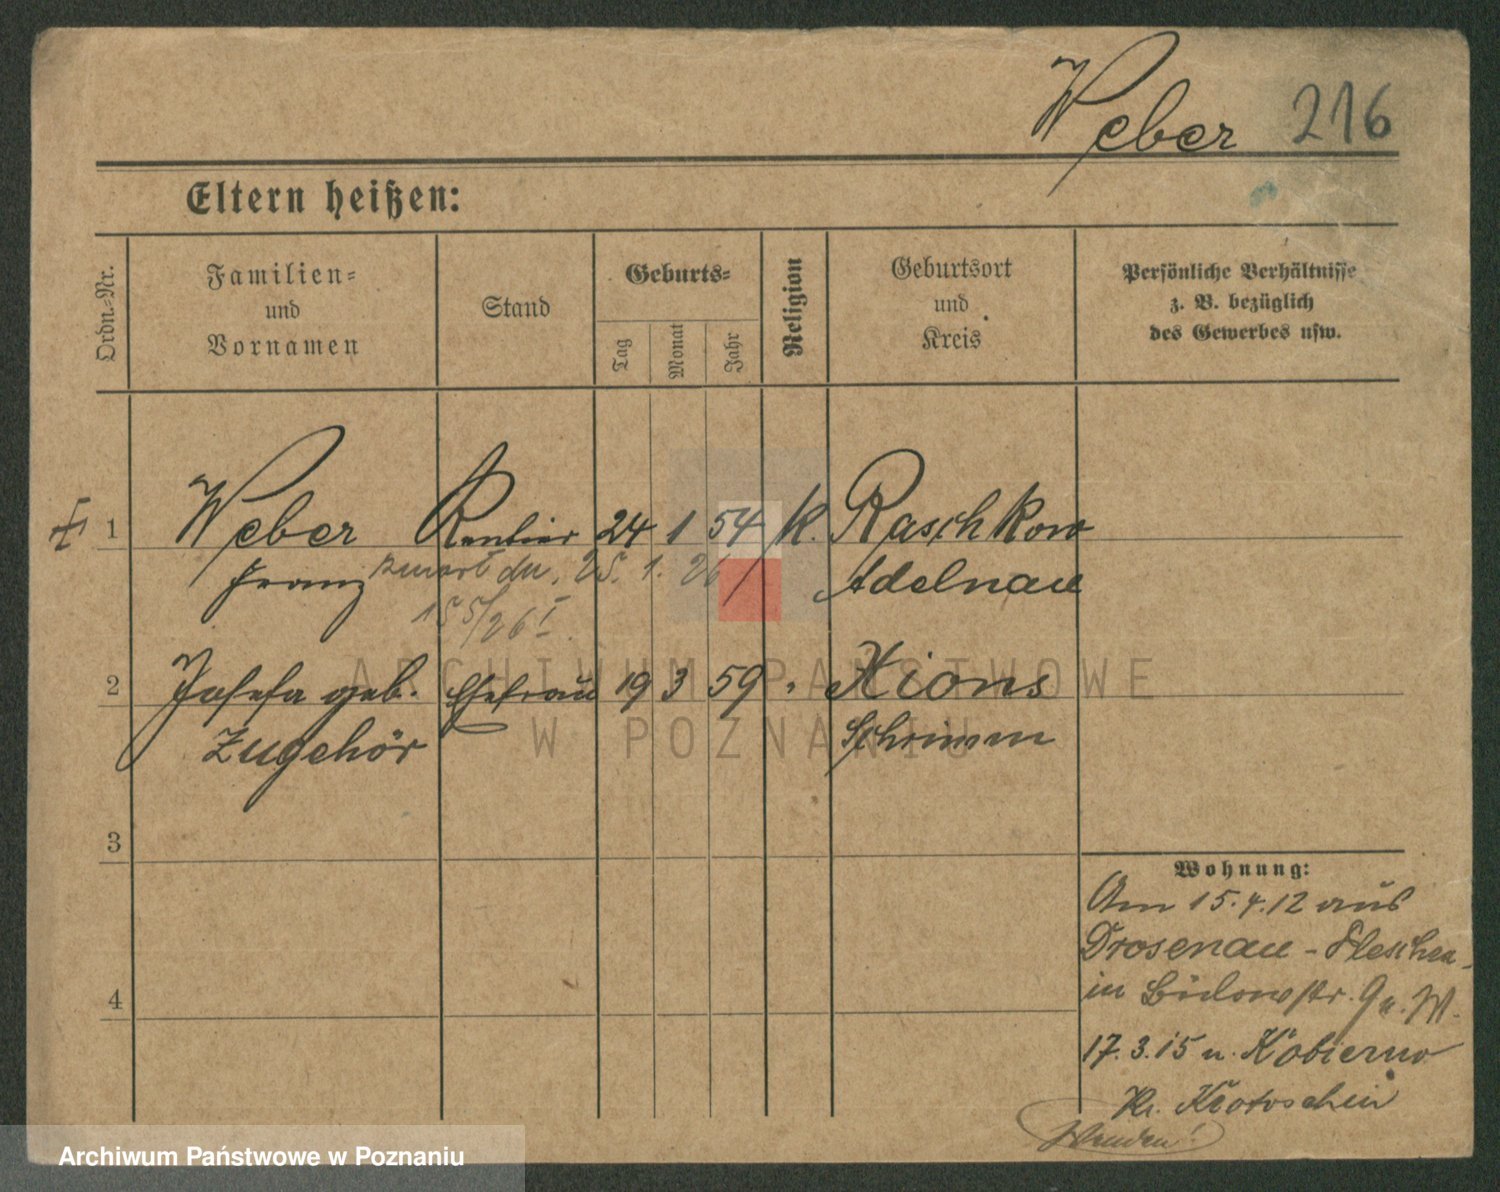 Weber 216
Eltern heißen:
Ordn.-Nr.
Familien-
und
Vornamen
Stand
Geburts-
Tag
Monat
Jahr
Religion
Geburtsort
und
Kreis
Persönliche Verhältnisse
z. B. bezüglich
des Gewerbes usw.
1 Weber Rentier 24 1 54 k. Raschkow
Franz 25. 1. 26 Adelnau
155/26 I
2 Josefa geb. Ehefrau 19 3 59 " Xions
Zugehör Schrimm
3
4
Wohnung:
Am 15.4.12 aus
Drosenau - Pleschen
in Bülowstr. 9
17.3.15 n. Kobierno
Kr. Krotoschin
Wenden!
ARCHIWUM PAŃSTWOWE
W POZNANIU
Archiwum Państwowe w Poznaniu